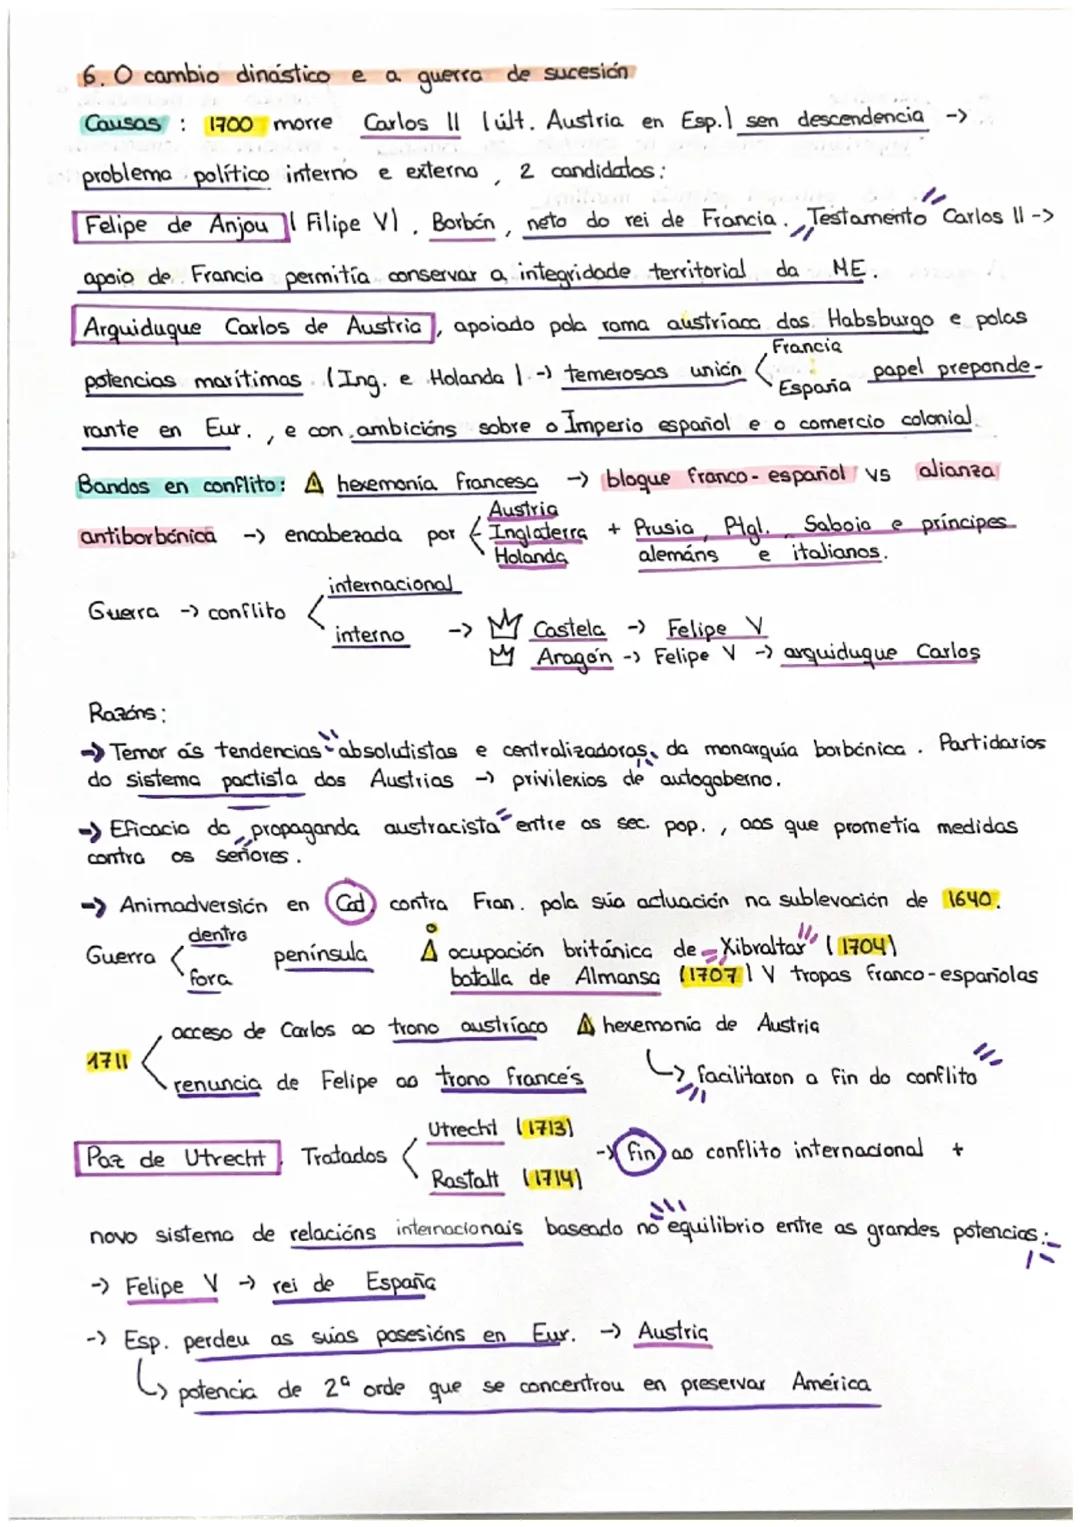 6. O cambio dinástico e a guerra de sucesión
Causas : 1700 morre Carlos II (últ. Austria en Esp.) sen descendencia ->
problema político interno e externo, 2 candidatos:
Felipe de Anjou (Filipe V), Borbón, neto do rei de Francia. Testamento Carlos II ->
apoio de Francia permitía conservar a integridade territorial da ME.
Arquiduque Carlos de Austria, apoiado pola rama austríaca dos Habsburgo e polas
potencias marítimas (Ing. e Holanda) -> temerosas unión < Francia España papel preponde-
rante en Eur., e con ambicións sobre o Imperio español e o comercio colonial
Bandos en conflito: hexemonía francesa -> bloque franco-español vs alianza
antiborbónica -> encabezada por < Austria Inglaterra Holanda + Prusia, Ptgl., Saboia e príncipes
alemáns e italianos.
Guerra -> conflito < internacional
interno -> Castela -> Felipe V
Aragón -> Felipe V -> arquiduque Carlos
Razóns:
-> Temor ás tendencias absolutistas e centralizadoras da monarquía borbónica. Partidarios
do sistema pactista dos Austrias -> privilexios de autogoberno.
-> Eficacia da propaganda austracista entre os sec. pop., aos que prometía medidas
contra os señores.
-> Animadversión en Cat contra Fran. pola súa actuación na sublevación de 1640.
Guerra < dentro fora península ocupación británica de Xibraltar (1704)
batalla de Almansa (1707) V tropas franco-españolas
1711 < acceso de Carlos ao trono austríaco hexemonía de Austria
renuncia de Felipe ao trono francés -> facilitaron a fin do conflito
Paz de Utrecht. Tratados < Utrecht (1713) Rastatt (1714) -> fin ao conflito internacional +
novo sistema de relacións internacionais baseado no equilibrio entre as grandes potencias:
-> Felipe V -> rei de España
-> Esp. perdeu as súas posesións en Eur. -> Austria
-> potencia de 2ª orde que se concentrou en preservar América